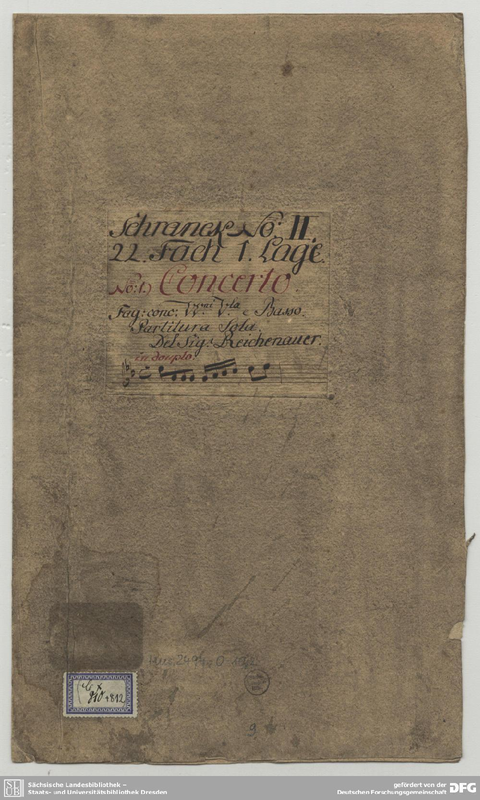 Schranck No: II.
22. Fach 1. Lage.
No: 1.) Concerto.
Fag: conc: VVni Vla e Basso.
Partitura Sola.
Del Sigr: Reichenauer.
in douplo.
Sächsische Landesbibliothek –
Staats- und Universitätsbibliothek Dresden
gefördert von der
Deutschen Forschungsgemeinschaft
DFG